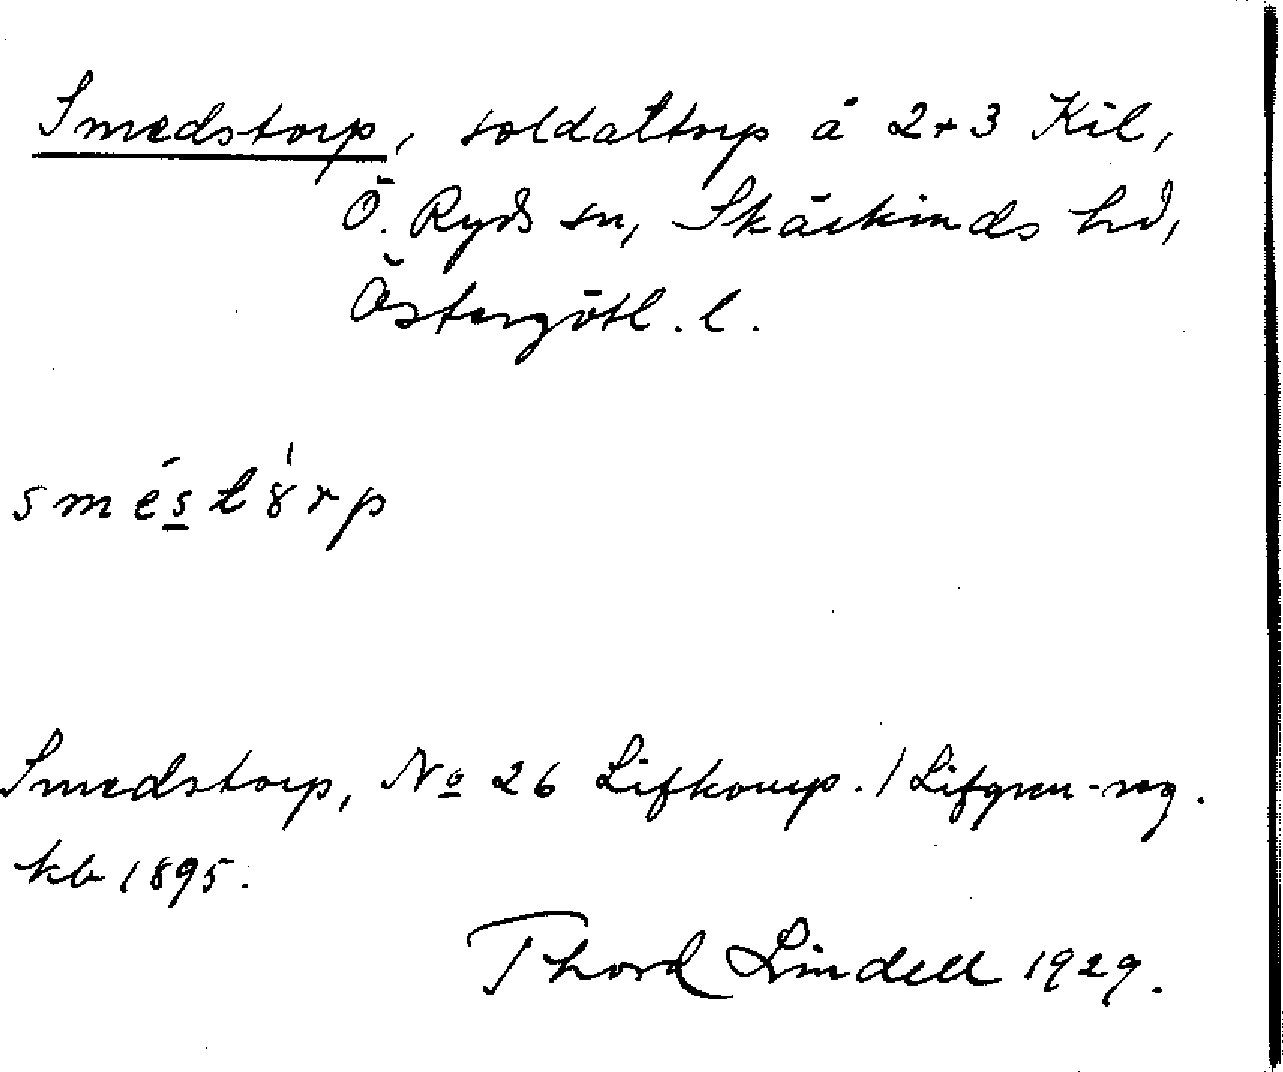 Smedstorp, soldattorp å 2+3 Kil,
Ö. Ryds sn, Skärkinds hd,
Östergötl. l.
smést8́rp
Smedstorp, No 26 Lifkomp. / Lifgren-reg.
kb 1895.
Thord Lindell 1929.